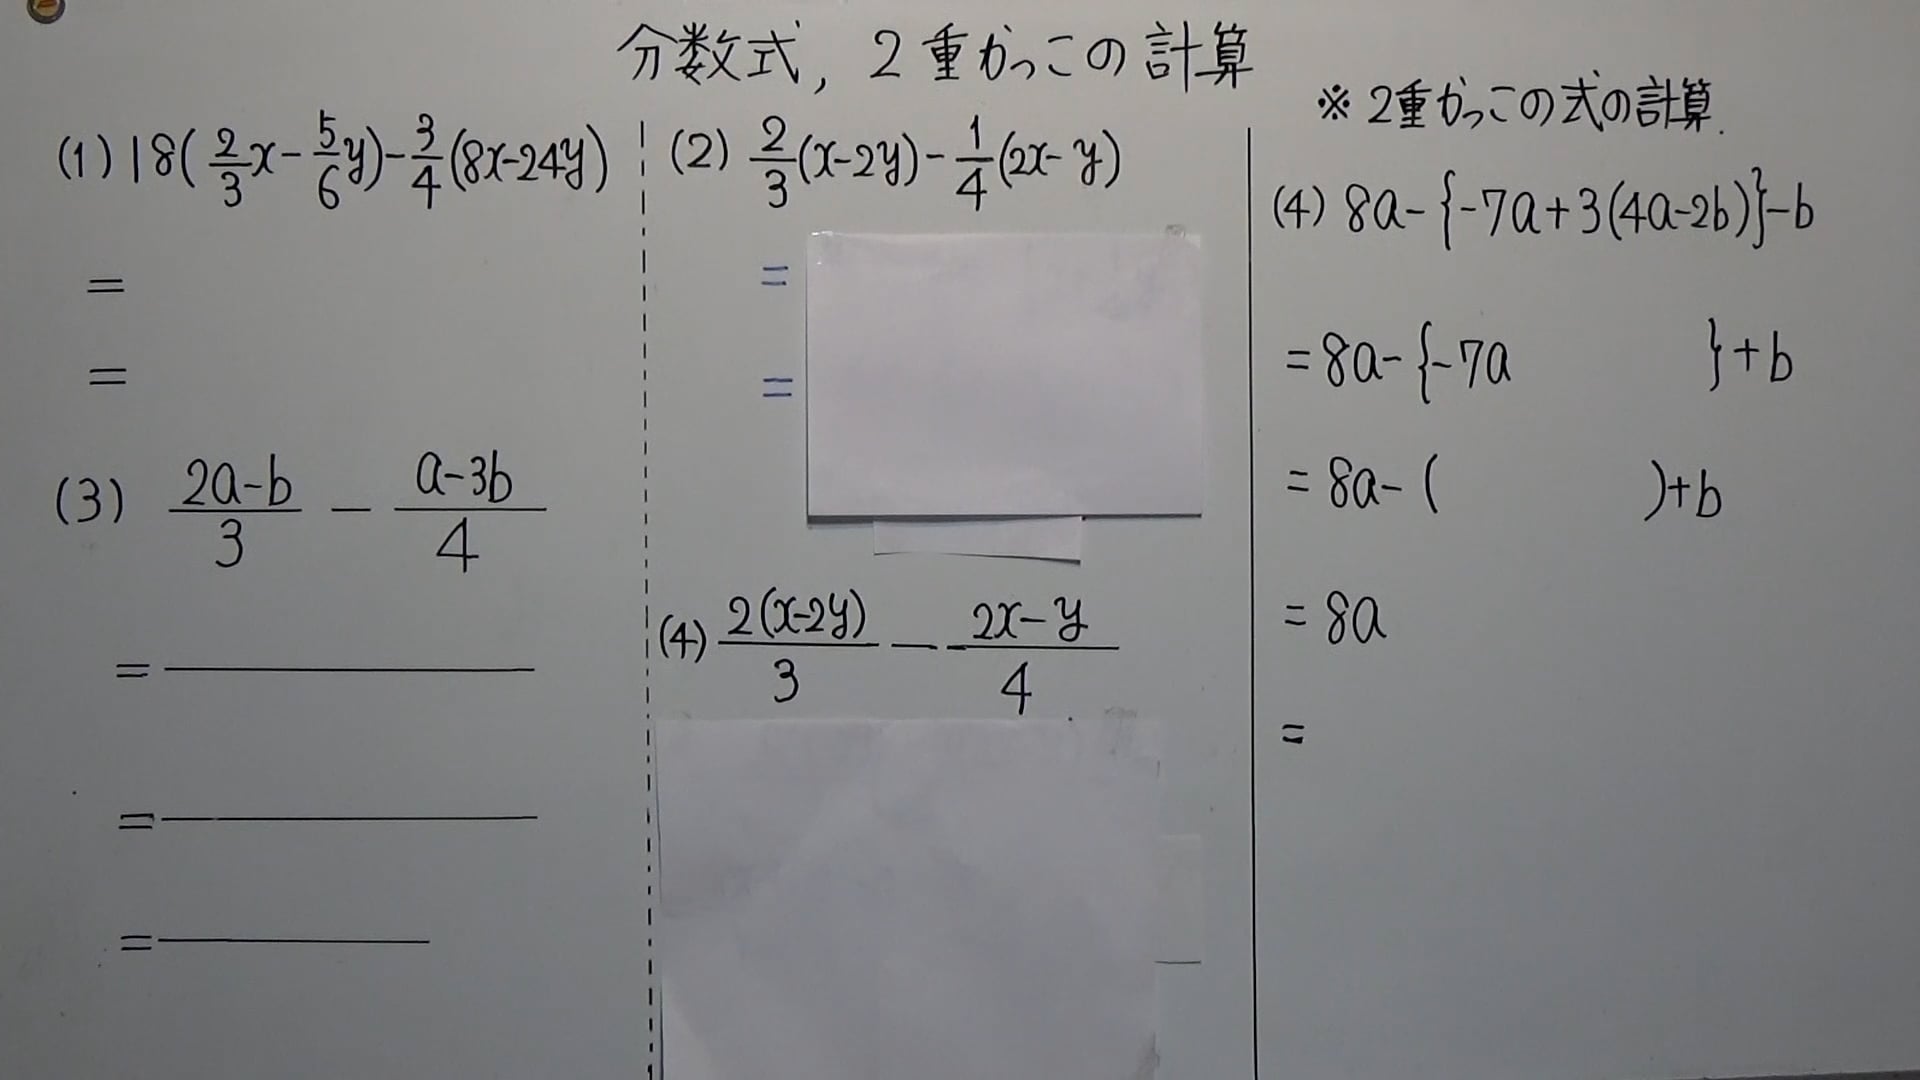 分数式, 2重かっこの計算
(1) 18(2/3x-5/6y)-3/4(8x-24y)
=
=
(2) 2/3(x-2y)-1/4(2x-y)
=
=
(3) (2a-b)/3 - (a-3b)/4
=
=
=
(4) 2(x-2y)/3 - (2x-y)/4
※2重かっこの式の計算.
(4) 8a-{-7a+3(4a-2b)}-b
=8a-{-7a }+b
=8a-( )+b
=8a
=